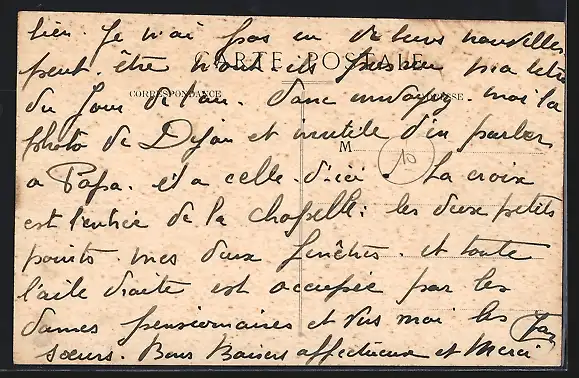 bien. Je n'ai pas eu de leurs nouvelles
CARTE POSTALE
peut-être n'ont-ils pas eu ma lettre
CORRESPONDANCE
ADRESSE
du Jour de l'an. Donc envoyez-moi la
photo de Dijon et inutile d'en parler
M
10
a Papa. et a celle d'ici. La croix
est l'entrée de la chapelle: les deux petits
points mes deux fenêtres. et toute
l'aile droite est occupée par les
dames pensionnaires et moi les
sœurs. Bons Baisers affectueux et Merci